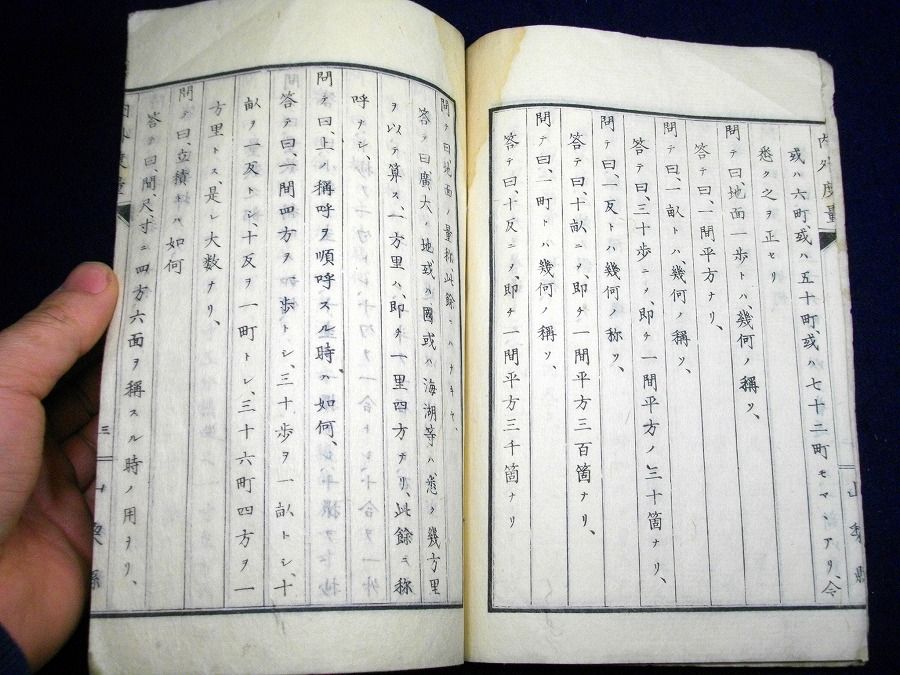 内外度量
或ハ六町或ハ五十町、或ハ七十二町モマヽアリ、今
悉ク之ヲ正セリ
問テ曰、地面一歩トハ、幾何ノ稱ソ、
答テ曰、一間平方ナリ、
問テ曰、一畝トハ、幾何ノ稱ソ、
答テ曰、三十歩ニヲ、即チ一間平方ノ三十箇ナリ、
問テ曰、一反トハ幾何ノ称ソ、
答テ曰、十畝ニヲ、即チ一間平方三百箇ナリ、
問テ曰、一町トハ幾何ノ稱ソ、
答テ曰、十反ニヲ、即チ一間平方三千箇ナリ
問テ曰地面ノ量称、此餘ニハナキヤ、
答テ曰廣大ノ地或ハ國或ハ海湖等ハ、悉ク幾方里
ヲ以テ算ス、一方里ハ、即チ一里四方ナリ、此餘ニ称
呼ナシ、
問テ曰、上ノ稱呼ヲ順呼スル時ハ如何、
答テ曰、一間四方ヲ一歩トシ、三十歩ヲ一畝トシ、十
畝ヲ一反トシ、十反ヲ一町トシ、三十六町四方ヲ一
方里トス是レ大数ナリ、
問テ曰、立積トハ如何
答テ曰、間、尺、寸ニ四方六面ヲ稱スル時ノ用ヲリ、
三